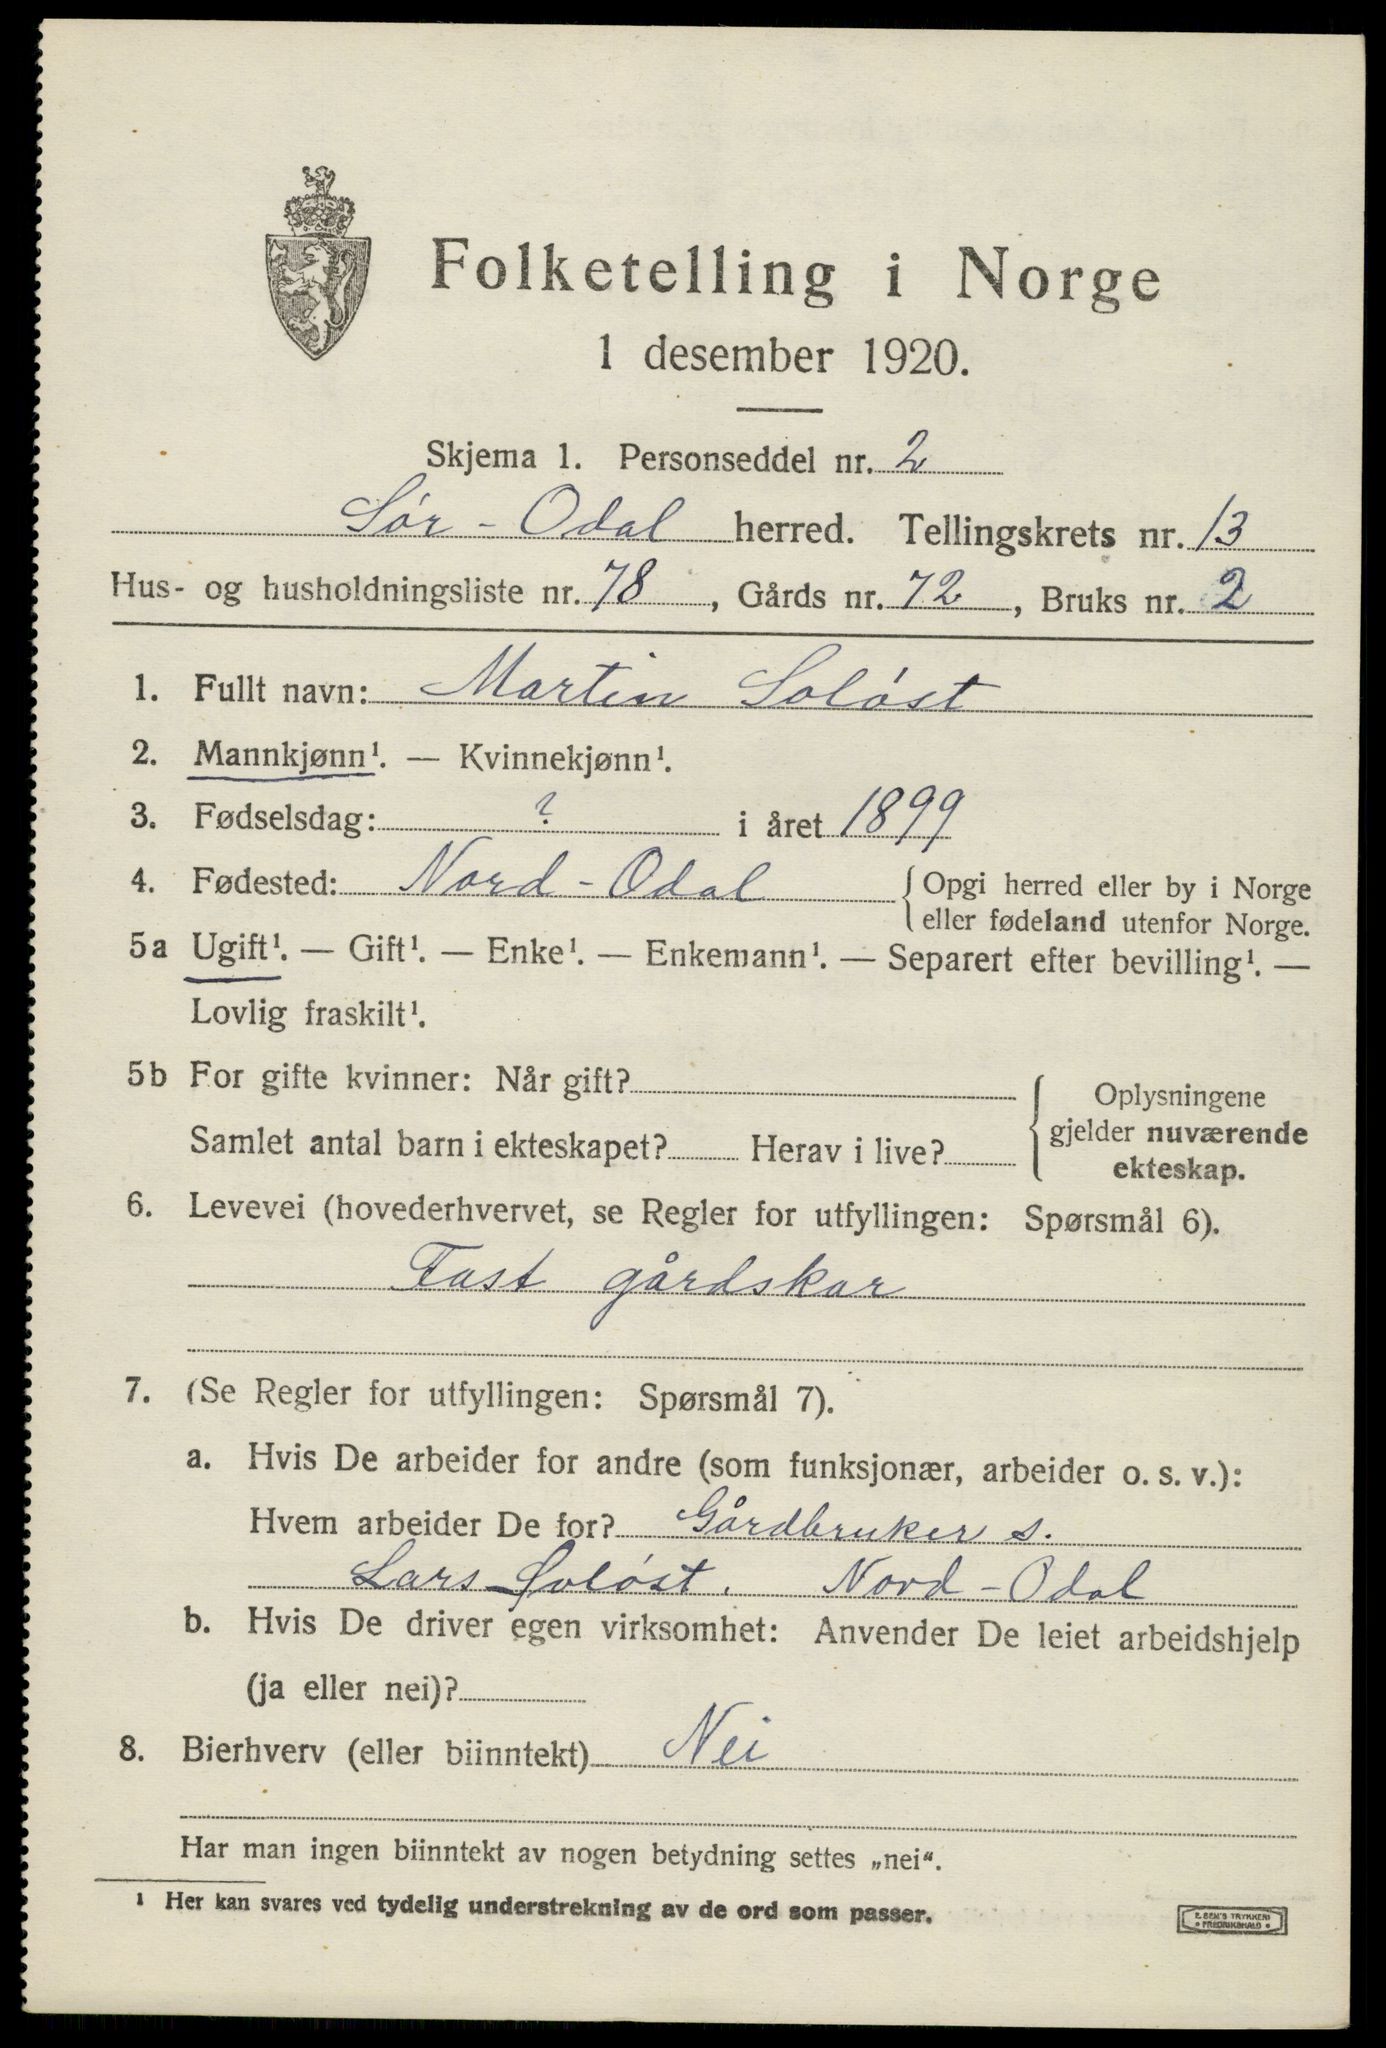 Folketelling i Norge
1 desember 1920.
Skjema 1. Personseddel nr. 2
Sór - Odal herred. Tellingskrets nr. 13
Hus- og husholdningsliste nr. 78, Gårds nr. 72, Bruks nr. 2
1. Fullt navn: Martin Solóst
2. Mannkjønn¹. — Kvinnekjønn¹.
3. Fødselsdag: ? i året 1899
4. Fødested: Nord - Odal { Opgi herred eller by i Norge
eller fødeland utenfor Norge.
5a Ugift¹. — Gift¹. — Enke¹. — Enkemann¹. — Separert efter bevilling¹. —
Lovlig fraskilt¹.
5b For gifte kvinner: Når gift? { Oplysningene
gjelder nuværende
Samlet antal barn i ekteskapet? Herav i live? ekteskap.
6. Levevei (hovederhvervet, se Regler for utfyllingen: Spørsmål 6).
Fast gårdskar
7. (Se Regler for utfyllingen: Spørsmål 7).
a. Hvis De arbeider for andre (som funksjonær, arbeider o. s. v.):
Hvem arbeider De for? Gårdbruker s.
Lars Solóst. Nord - Odal
b. Hvis De driver egen virksomhet: Anvender De leiet arbeidshjelp
(ja eller nei)?
8. Bierhverv (eller biinntekt) Nei
Har man ingen biinntekt av nogen betydning settes „nei“.
¹ Her kan svares ved tydelig understrekning av de ord som passer.
E. SEM'S TRYKKERI
• FREDRIKSHALD •